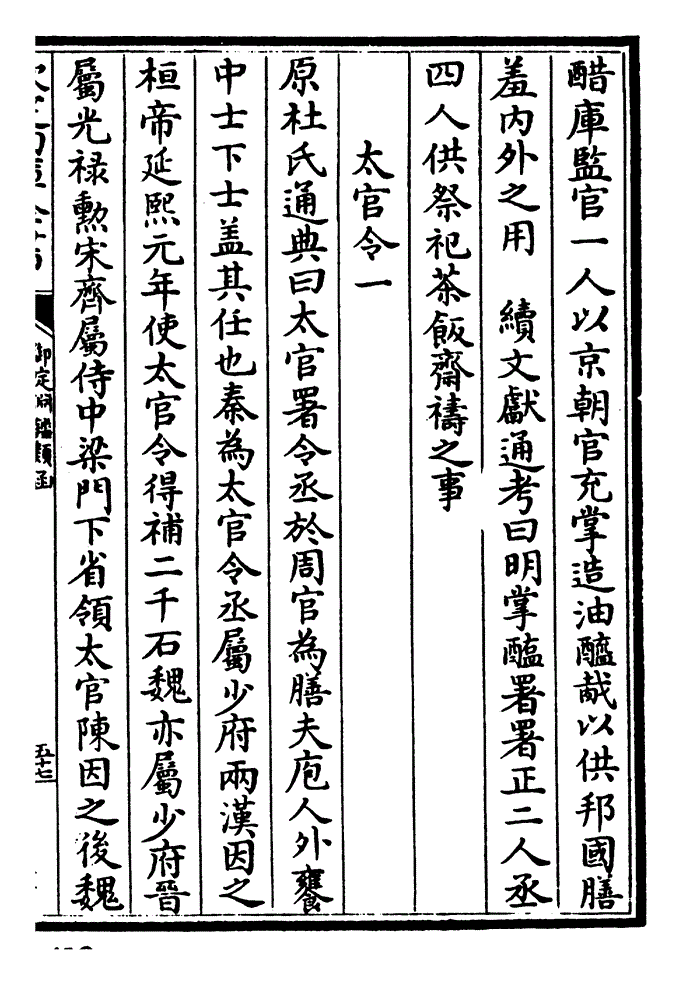 醋庫監官一人以京朝官充掌造油醯醶以供邦國膳
羞内外之用　續文獻通考曰明掌醢署署正二人丞
四人供祭祀茶飯齋禱之事
太官令一
原杜氏通典曰太官署令丞於周官為膳夫庖人外饔
中士下士盖其任也秦為太官令丞屬少府兩漢因之
桓帝延熙元年使太官令得補二千石魏亦屬少府晉
屬光禄勲宋齊屬侍中梁門下省領太官陳因之後魏
御定淵鑑類函